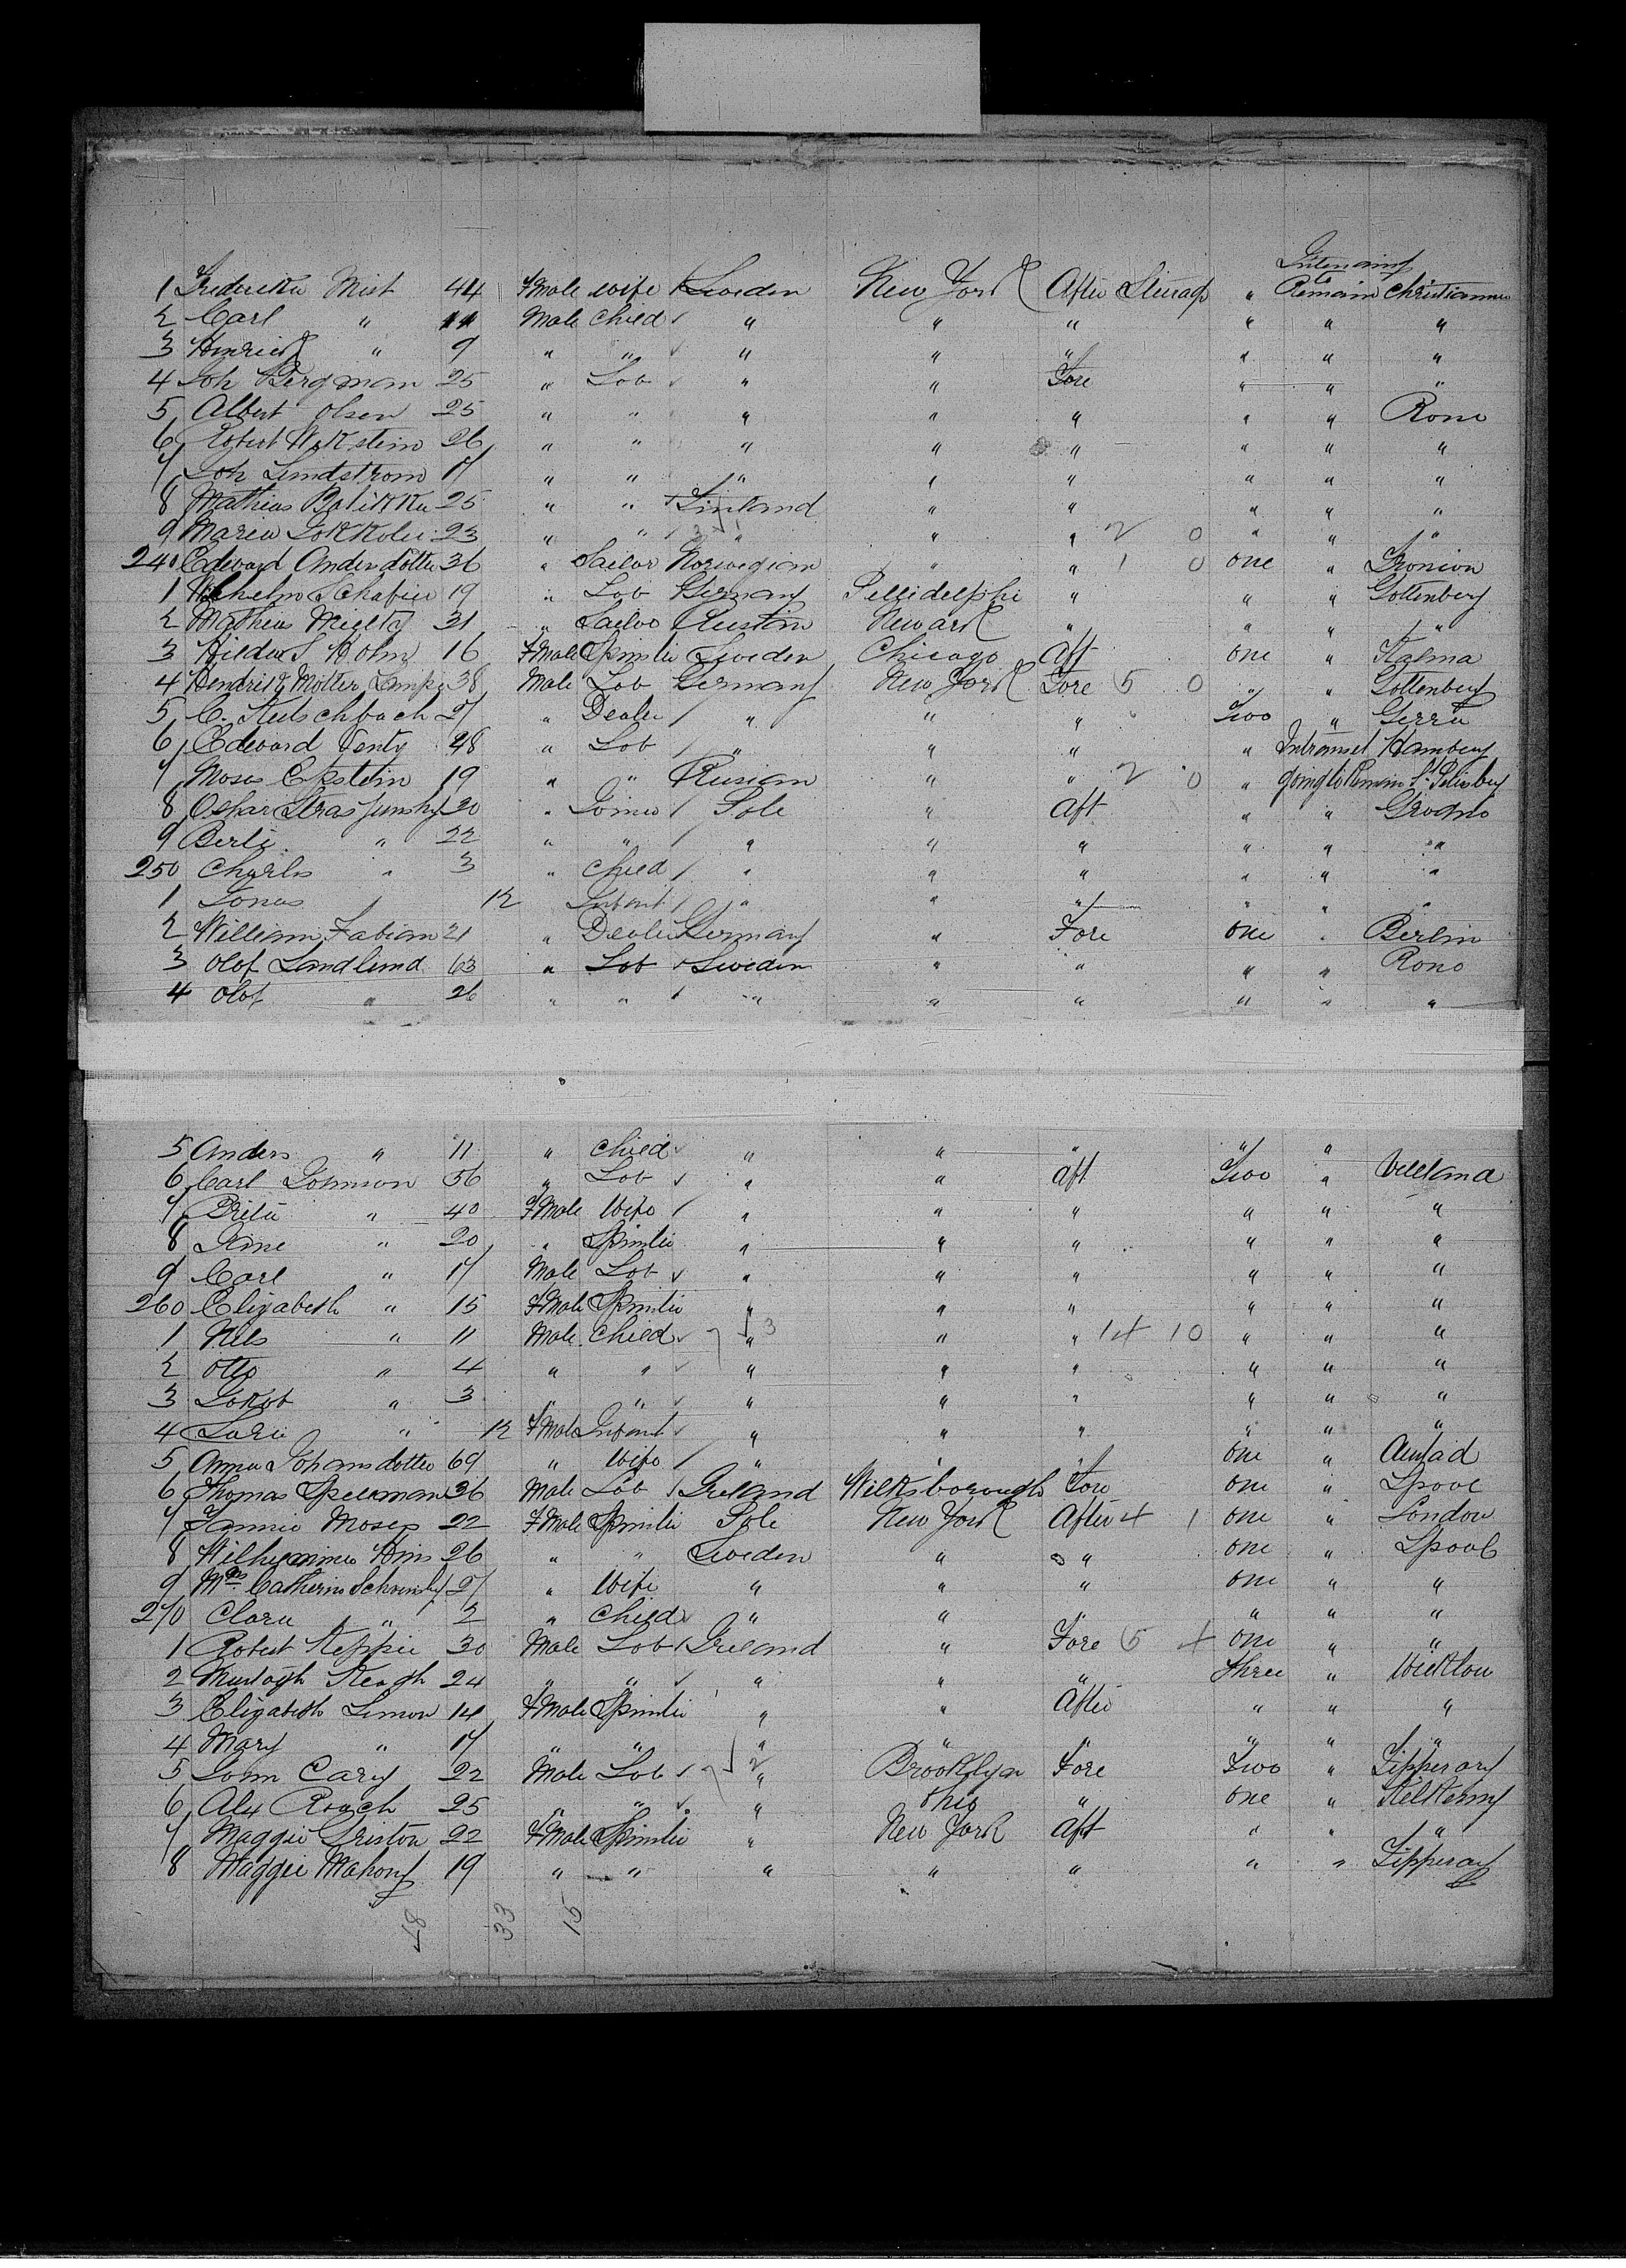 Intending
1 Frederika Mist 44 FMale wife Sweden New York After Steerage " to Remain Christianna
2 Carl " 11 Male Child " " " " " "
3 Henrick " 9 " " " " " " " "
4 Joh Bergman 25 " Lob " " Fore " " "
5 Albert Olsen 25 " " " " " " " Rone
6 Robert Wekstein 26 " " " " " " " "
7 Joh Lindstrom 17 " " " " " " " "
8 Mathias 25 " " Finland " " " " "
9 Maria 23 " " " " " 2 0 " " "
240 Edward Andersdotter 36 " Sailor Norwegian " " 1 0 one "
1 Wilhelm Schafier 19 " Lob Germany Pellidelphi " " " Gottenberg
2 Mathias 31 " Sailor Newark " " " "
3 Hilda S Holm 16 FMale Spinster Sweden Chicago Aft one " Kalma
4 Hendrik Moller 38 Male Lob Germany New York Fore 5 0 " " Gottenberg
5 C. 27 " Dealer " " " Two "
6 Edward 28 " Lob " " " " Intransit Hamberg
7 Moses Epstein 19 " " Rusian " " 2 0 " going to Remain St. Petersberg
8 Oskar 20 " Joiner Pole " Aft " " Grodno
9 " 22 " " " " " " " "
250 Charles " 3 " Child " " " " " "
1 Jonas " 12 Infant " " " " " "
2 William Fabian 21 " Dealer Germany " Fore one " Berlin
3 Olof Landlund 63 " Lob Sweden " " " " Rono
4 Olof " 26 " " " " " " " "
5 Anders " 11 " Child " " " " "
6 Carl Johnson 56 " Lob " " Aft Two "
7 " 40 FMale Wife " " " " " "
8 " 20 " Spinster " " " " " "
9 Carl " 17 Male Lob " " " " " "
260 Elizabeth " 15 FMale Spinster " " " " " "
1 Nils " 11 Male Child 3 " " " 14 10 " " "
2 Otto " 4 " " " " " " " "
3 Jakob " 3 " " " " " " " "
4 " 12 FMale Infant " " " " " "
5 Anna Johansdotter 69 " Wife " " " one "
6 Thomas Speekman 36 Male Lob Ireland Wilksborough Fore one " Lpool
7 Fannie Moses 22 FMale Spinster Pole New York After 4 1 one " London
8 26 " " Sweden " " one " Lpool
9 Mrs Catherine 27 " Wife " " " one " "
270 Clara " 2 " Child " " " " " "
1 Robert Keppie 30 Male Lob Ireland " Fore 5 4 one " "
2 Murtagh Keogh 24 " " " " " three " Wicklow
3 Elizabeth Limon 14 FMale Spinster " " After " " "
4 Mary " 17 " " " " " " " "
5 John Cary 22 Male Lob 2 " Brooklyn Fore Two " Tipperary
6 Alex Roach 25 " " " Ohio " one " Kelkenny
7 Maggie 22 FMale Spinster " New York Aft " " "
8 Maggie Mahony 19 " " " " " " " Tipperary
33 15